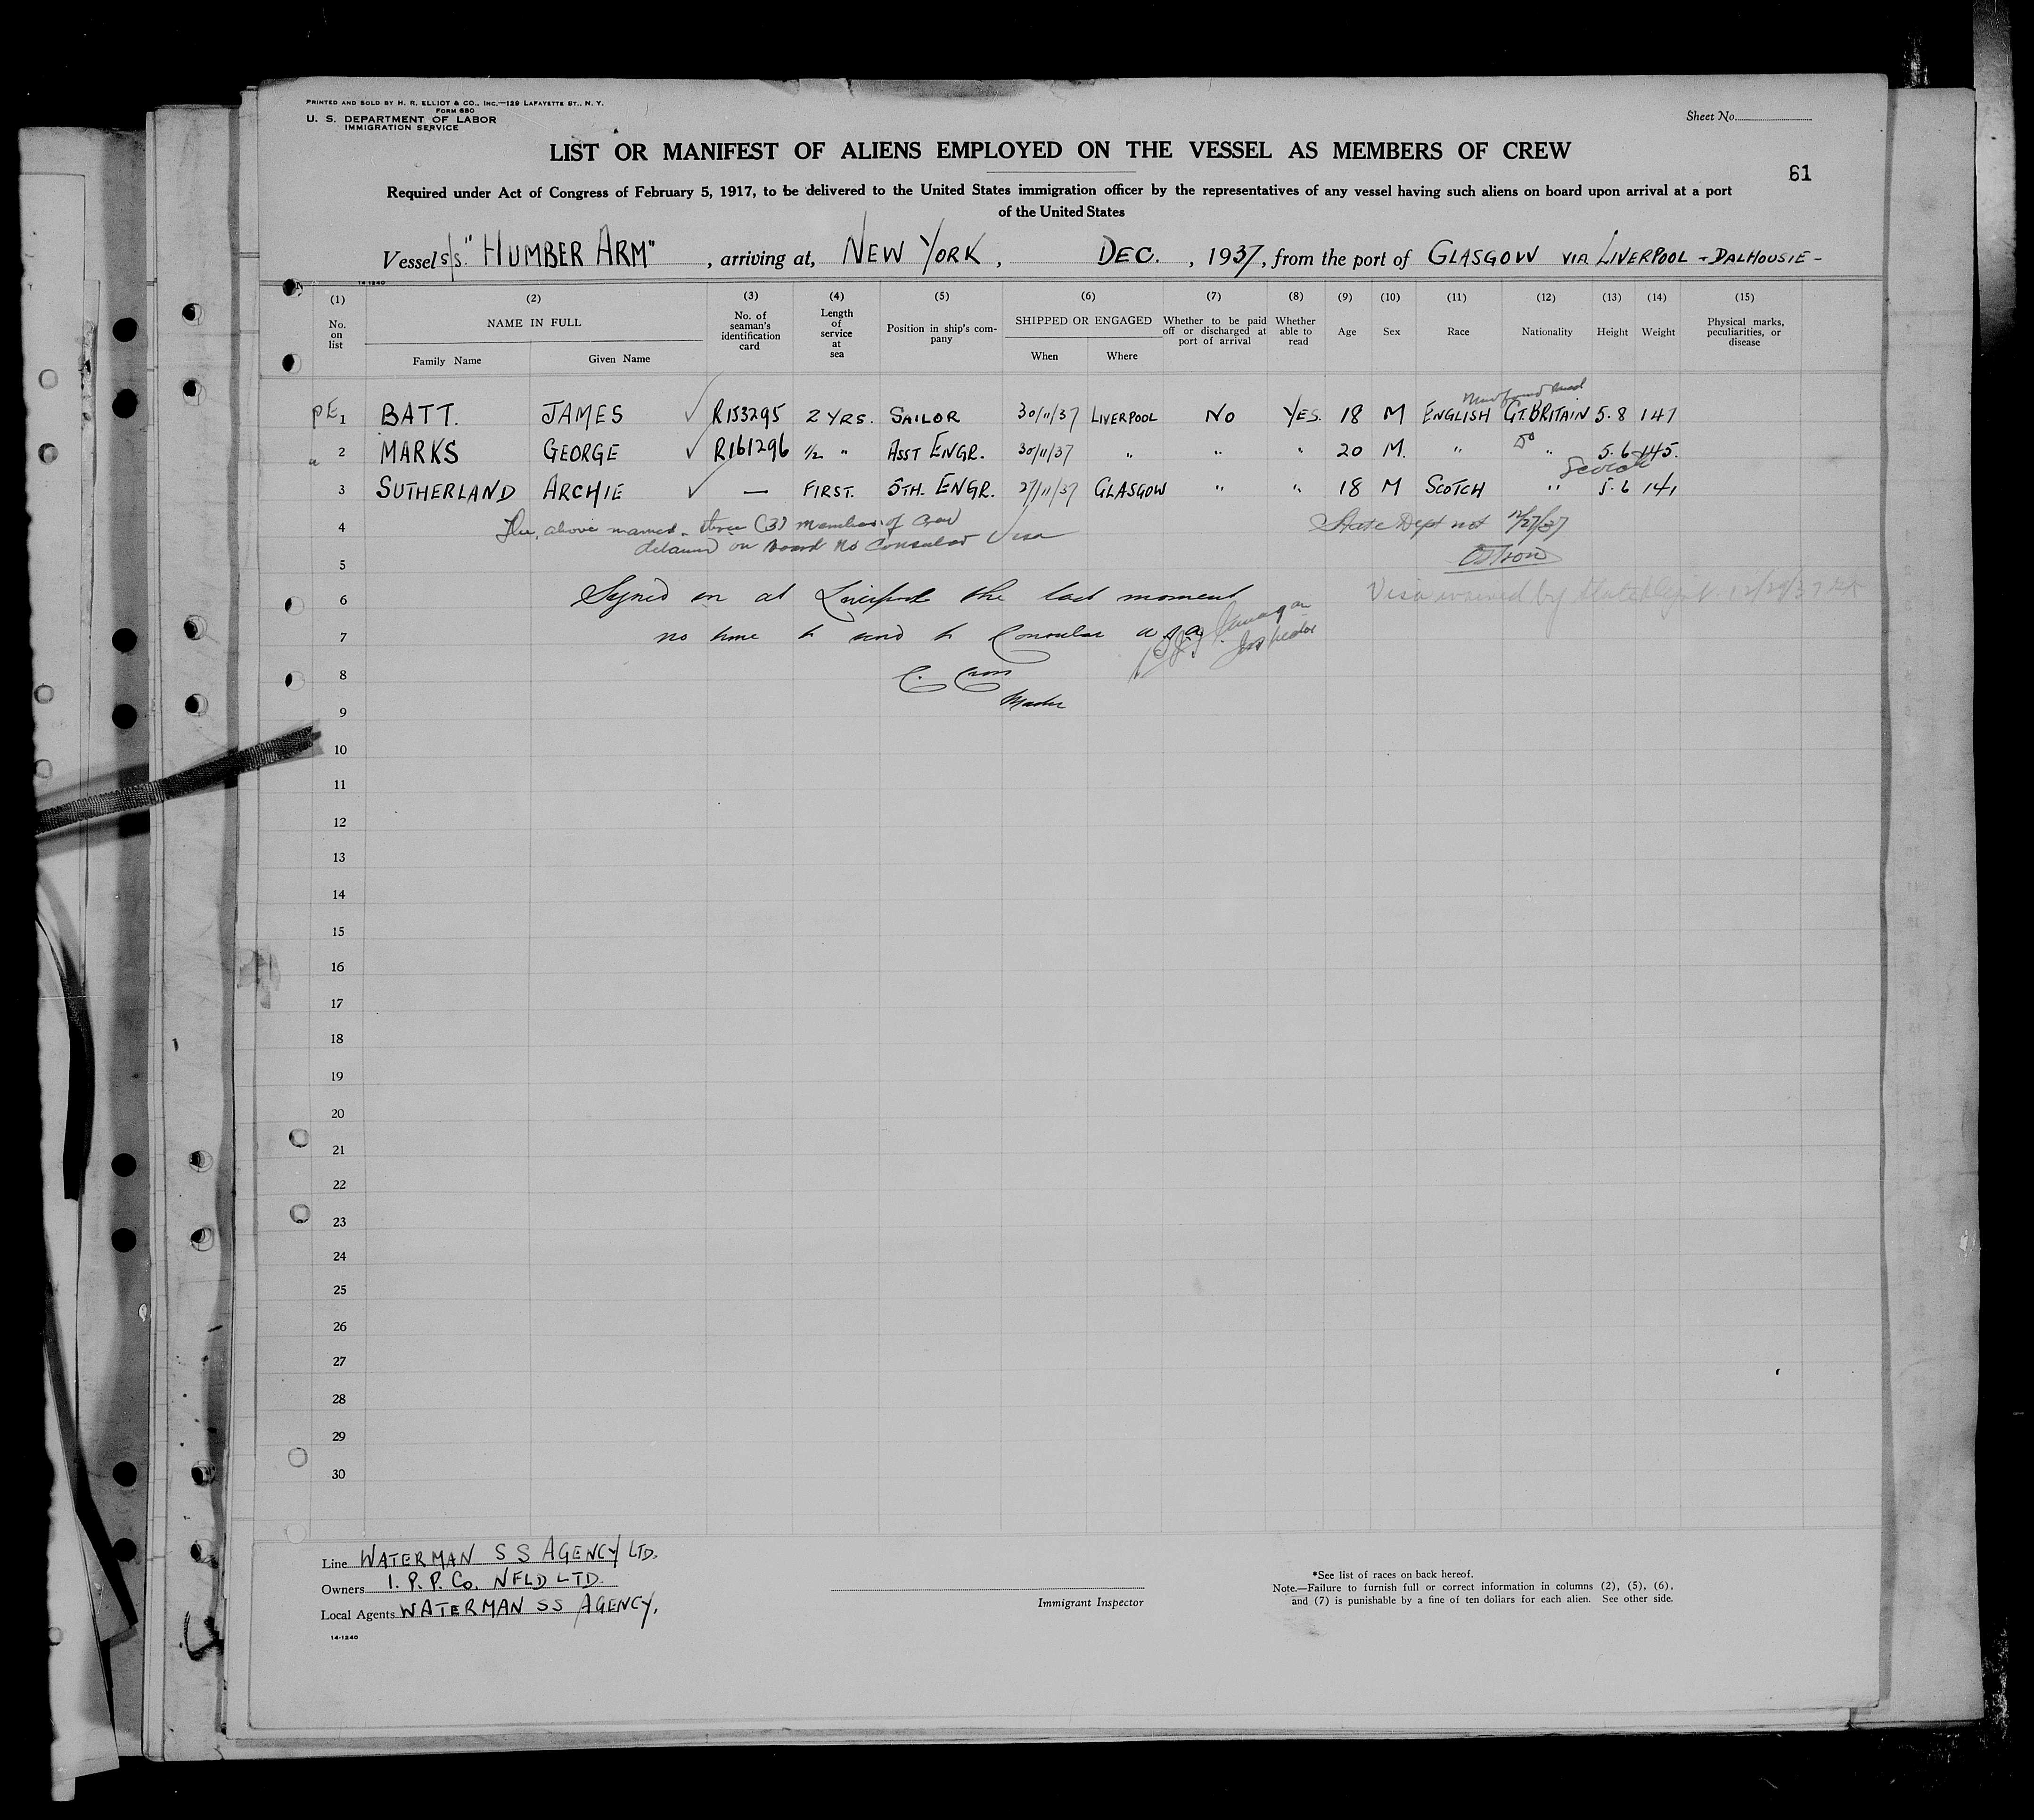 PRINTED AND SOLD BY H. R. ELLIOT & CO., INC.—129 LAFAYETTE ST., N. Y.
FORM 680
U. S. DEPARTMENT OF LABOR
IMMIGRATION SERVICE
Sheet No.
LIST OR MANIFEST OF ALIENS EMPLOYED ON THE VESSEL AS MEMBERS OF CREW
61
Required under Act of Congress of February 5, 1917, to be delivered to the United States immigration officer by the representatives of any vessel having such aliens on board upon arrival at a port
of the United States
Vessel s/s. "HUMBER ARM", arriving at, NEW YORK, DEC., 1937, from the port of GLASGOW VIA LIVERPOOL - DALHOUSIE -
14-1240
(1) (2) (3) (4) (5) (6) (7) (8) (9) (10) (11) (12) (13) (14) (15)
No. on list NAME IN FULL Family Name Given Name No. of seaman's identification card Length of service at sea Position in ship's company SHIPPED OR ENGAGED When Where Whether to be paid off or discharged at port of arrival Whether able to read Age Sex Race Nationality Height Weight Physical marks, peculiarities, or disease
Newfoundland
PE 1 BATT. JAMES ✓ R153295 2 YRS. SAILOR 30/11/37 LIVERPOOL NO YES. 18 M ENGLISH GT. BRITAIN 5.8 147
Do
" 2 MARKS GEORGE ✓ R161296 1/2 " ASST ENGR. 30/11/37 " " " 20 M. " " 5.6 145.
Scotch
3 SUTHERLAND ARCHIE ✓ — FIRST. 5TH. ENGR. 27/11/37 GLASGOW " " 18 M SCOTCH " 5.6 141
4 The above named three (3) members of crew State Dept not 12/27/37
detained on board No Consular Visa
5
6 Signed on at Liverpool the last moment Visa waived by State Dept. 12/29/37
7 no time to send to Consular Inspector
8 C. Cross
Master
9
10
11
12
13
14
15
16
17
18
19
20
21
22
23
24
25
26
27
28
29
30
Line WATERMAN S S AGENCY LTD.
Owners I. P. P. Co. NFLD LTD.
Local Agents WATERMAN SS AGENCY.
14-1240
Immigrant Inspector
*See list of races on back hereof.
Note.—Failure to furnish full or correct information in columns (2), (5), (6),
and (7) is punishable by a fine of ten dollars for each alien. See other side.